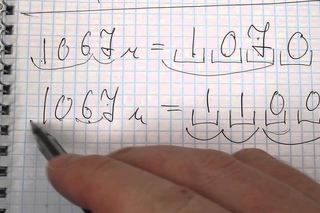 1067 м = 1 0 7 0
1067 м = 1 1 0 0